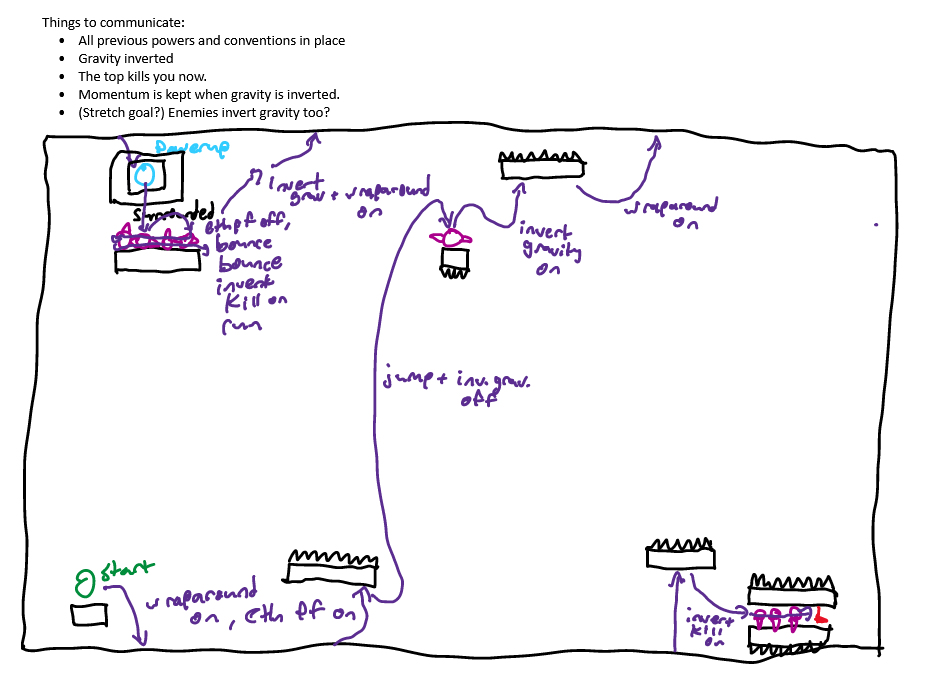 Things to communicate:
• All previous powers and conventions in place
• Gravity inverted
• The top kills you now.
• Momentum is kept when gravity is inverted.
• (Stretch goal?) Enemies invert gravity too?
Powerup
Surrounded
eth pf off,
bounce
bounce
invert
kill on
run
invert
grav + wraparound
on
invert
gravity
on
wraparound
on
jump + inv. grav.
off
start
wraparound
on, eth pf on
invert
kill
on